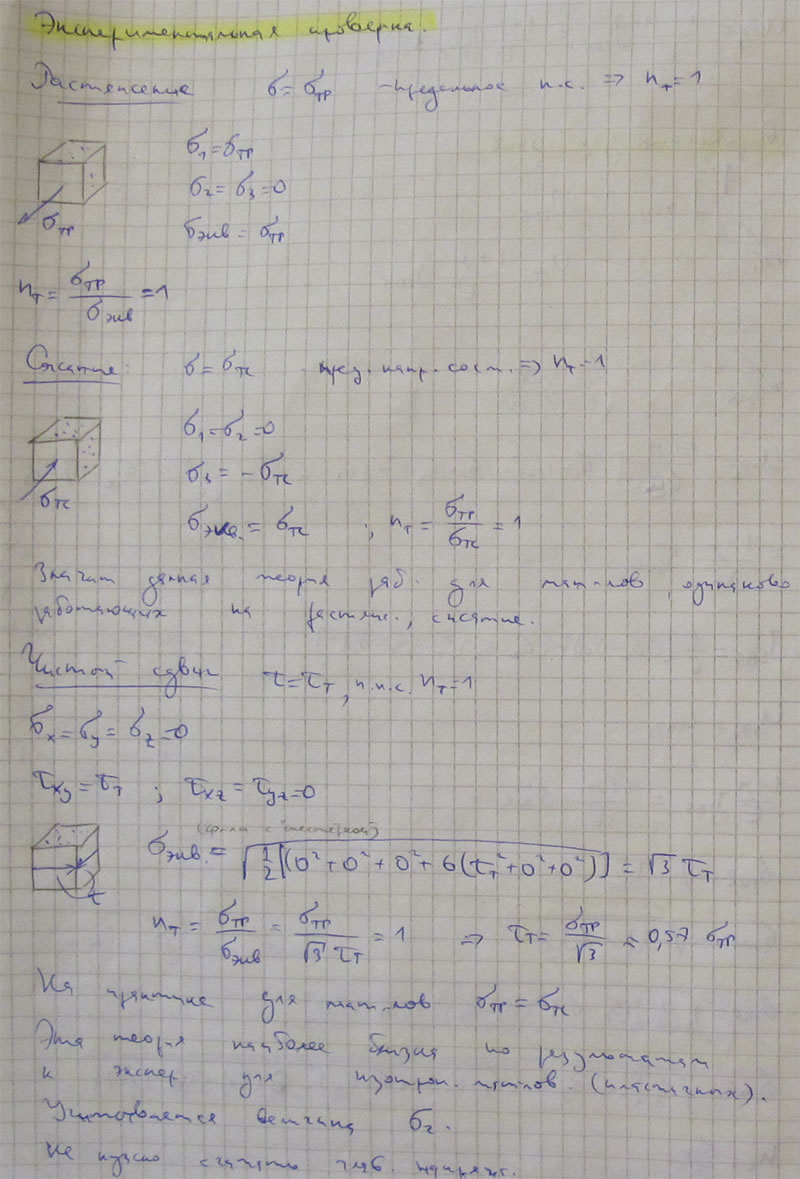 Экспериментальная проверка.
Растяжение σ = σтр – предельное н.с. ⇒ nт = 1
σ₁ = σтр
σ₂ = σ₃ = 0
σтр
σэкв = σтр
nт = σтр / σэкв = 1
Сжатие: σ = σтс пред. напр. сост. ⇒ nт = 1
σ₁ = σ₂ = 0
σ₃ = −σтс
σтс
σэкв. = σтс , nт = σтр / σтс = 1
Значит данная теория раб. для мат-лов, одинаково
работающих на растяж., сжатие.
Чистый сдвиг τ = τт, п.н.с. nт = 1
σx = σy = σz = 0
τxy = τт ; τxz = τyz = 0
(ф-ла с шестеркой)
σэкв. = √(1/2[(0² + 0² + 0² + 6(τт² + 0² + 0²)]) = √3 τт
τ
nт = σтр / σэкв = σтр / (√3 τт) = 1 ⇒ τт = σтр / √3 ≈ 0,57 σтр
На практике для мат-лов σтр = σтс
Эта теория наиболее близка по результатам
к экспер. для изотроп. мат-лов. (пластичных).
σ₂.
Не нужно считать глав. напряж.